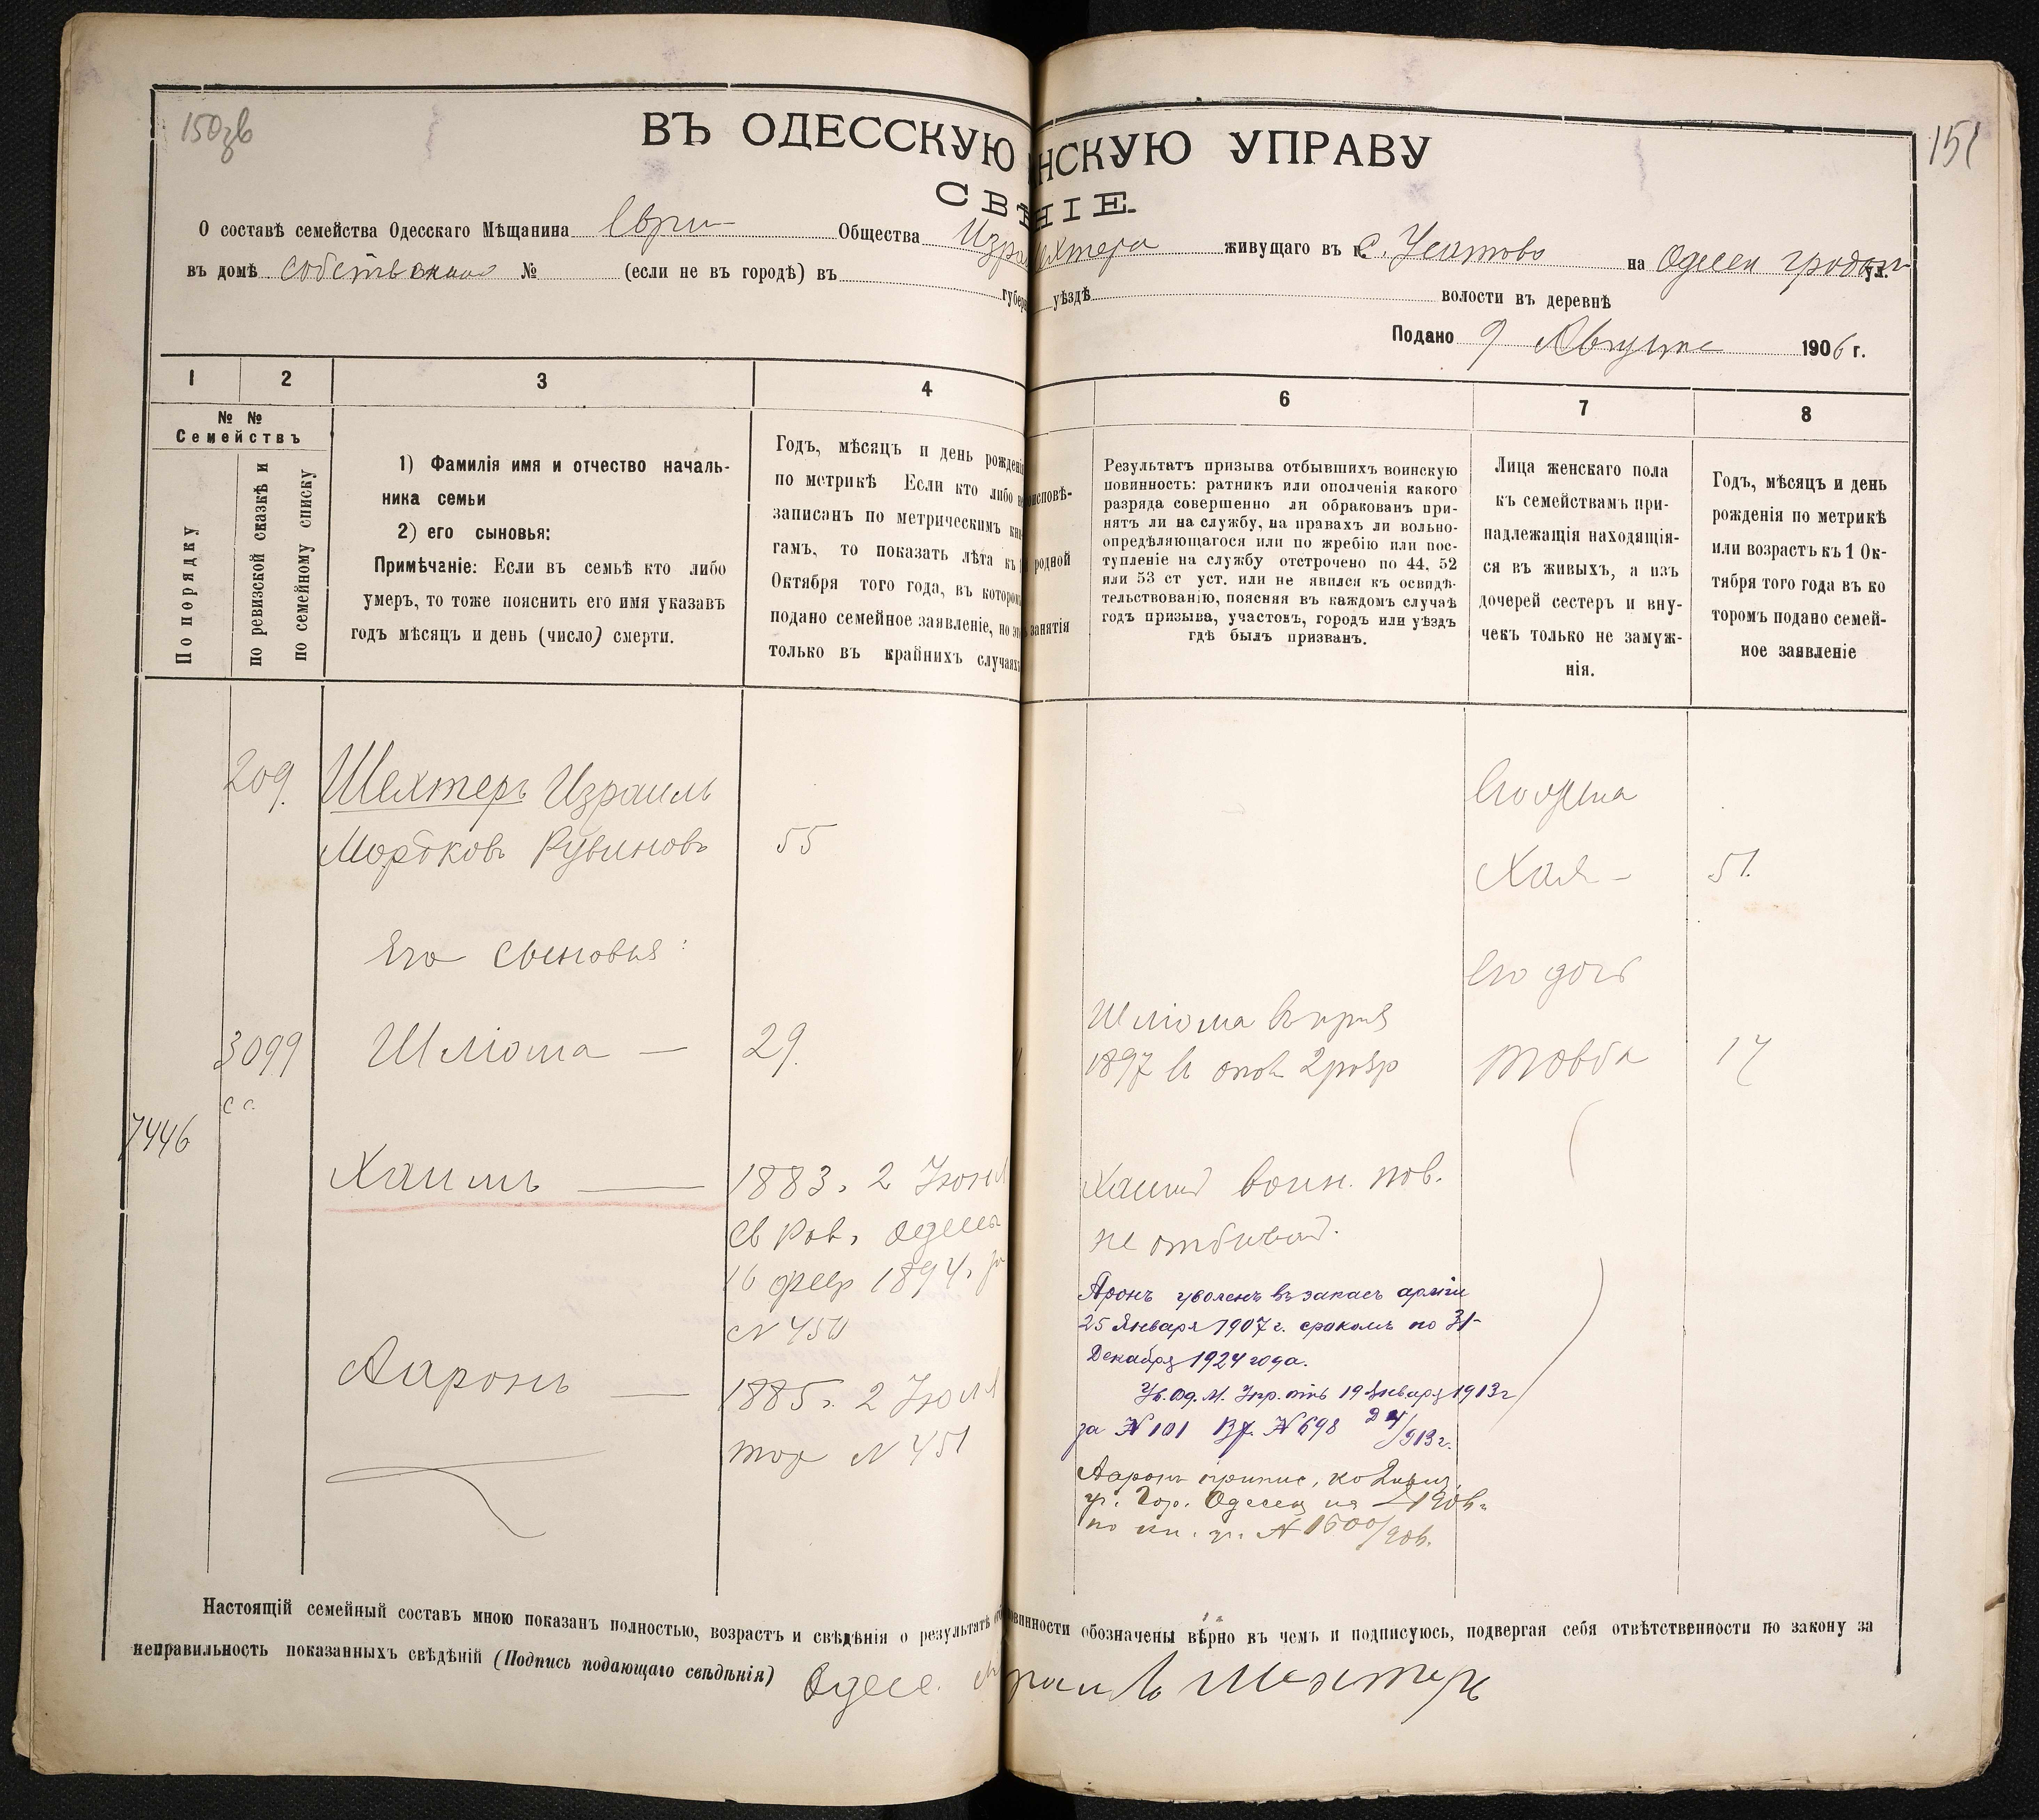 150зв
151
ВЪ ОДЕССКУЮ НСКУЮ УПРАВУ
СВѢНІЕ.
О составѣ семейства Одесскаго Мѣщанина Общества живущаго въ с. Усатово на Одесск градон ул.
въ домѣ собственно № (если не въ городѣ) въ губер уѣздѣ волости въ деревнѣ
Подано 9 Августа 1906 г.
1 2 3 4 6 7 8
№ №
Семействъ
По порядку
по ревизской сказкѣ и
по семейному списку
1) Фамилія имя и отчество началь-
ника семьи
2) его сыновья:
Примѣчаніе: Если въ семьѣ кто либо
умеръ, то тоже пояснить его имя указавъ
годъ мѣсяцъ и день (число) смерти.
Годъ, мѣсяцъ и день рожденія
по метрикѣ Если кто либо не
записанъ по метрическимъ кни-
гамъ, то показать лѣта къ 1
Октября того года, въ которомъ
подано семейное заявленіе, но это
только въ крайнихъ случаяхъ
оисповѣ-
родной
занятія
Результатъ призыва отбывшихъ воинскую
повинность: ратникъ или ополченія какого
разряда совершенно ли обракованъ при-
нятъ ли на службу, на правахъ ли вольно-
опредѣляющагося или по жребію или пос-
тупленіе на службу отстрочено по 44, 52
или 53 ст уст. или не явился къ освидѣ-
тельствованію, поясняя въ каждомъ случаѣ
годъ призыва, участовъ, городъ или уѣздъ
гдѣ былъ призванъ.
Лица женскаго пола
къ семействамъ при-
надлежащія находящія-
ся въ живыхъ, а изъ
дочерей сестеръ и вну-
чекъ только не замуж-
нія.
Годъ, мѣсяцъ и день
рожденія по метрикѣ
или возрастъ къ 1 Ок-
тября того года въ ко
торомъ подано семей-
ное заявленіе
209. Шехтеръ Израиль
Мортковъ Рувиновъ 55
Его жена
Хая - 51.
Его сыновья:
Его дочь
3099 Шліома — 29.
с с.
Шліома въ приз
1897 въ опол 2 разр
Товба 17
7446
Хаимъ — 1883. 2 Іюня
Св Рав. Одессы
16 февр 1894. за
N 450
Хаимъ воин. пов.
не отбывал.
Ааронъ — 1885. 2 Іюля
тож N 451
Аронъ уволенъ въ запасъ арміи
25 Января 1907 г. срокомъ по 31-
Декабря 1924 года.
Ув. Од. М. Упр. отъ 19 Января 1913 г
за № 101 Вх. № 698 913 г.
Ааронъ припис. ко
уч. Гор. Одессы на
по № 1600/906.
Настоящій семейный составъ мною показанъ полностью, возрастъ и свѣдѣнія о результатѣ от овинности обозначены вѣрно въ чемъ и подписуюсь, подвергая себя отвѣтственности по закону за
неправильность показанныхъ свѣдѣній (Подпись подающаго свѣдѣнія) Одесс. Израиль Шехтеръ